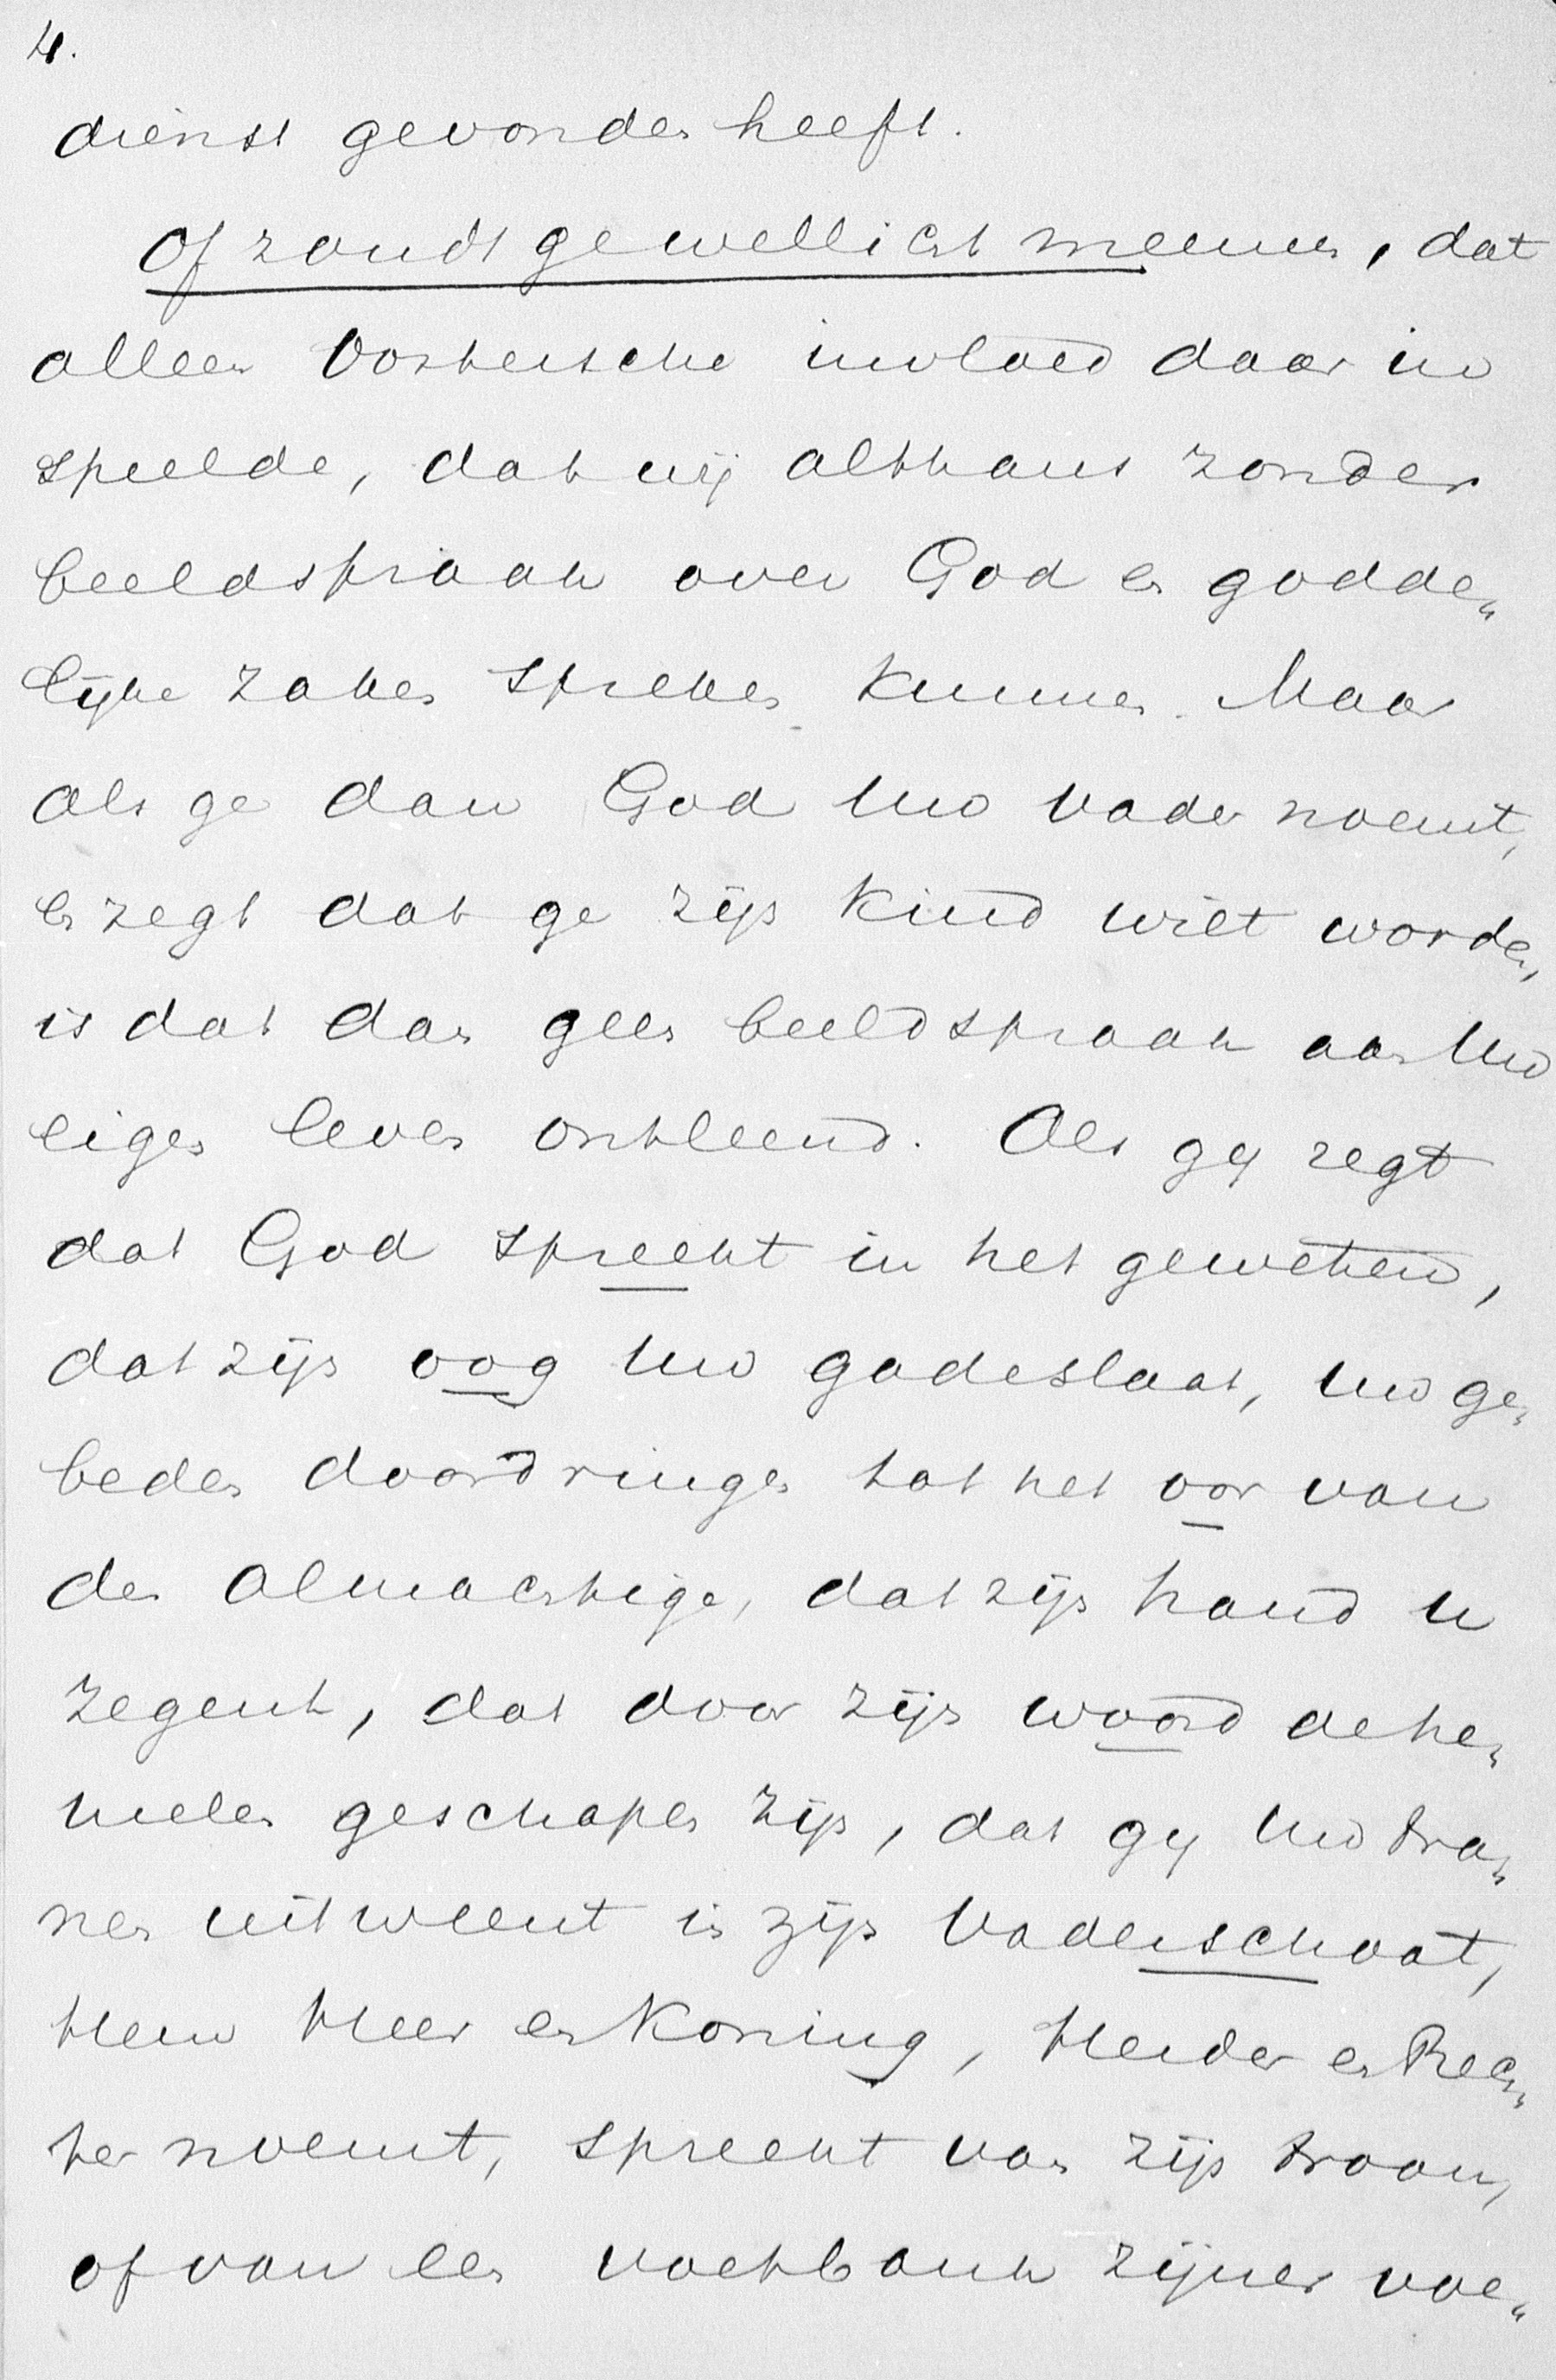 4.
dienst gevonden heeft.
Of zoudt ge wellicht meenen, dat
alleen Oostersche invloed daar in
speelde, dat wij althans zonder
beeldspraak over God en godde„
lijke zaken spreken kunnen. Maar
als ge dan God Uw Vader noemt,
en zegt dat ge zijn Kind wilt worden,
is dat dan geen beeldspraak aan Uw
eigen leven ontleend. Als gij zegt
dat God spreekt in het geweten,
dat zijn oog Uw gadeslaat, Uw ge„
beden doordringen tot het oor van
den Almachtige, dat zijn hand u
zegent, dat door zijn woord de he„
melen geschapen zijn, dat gij Uw tra„
nen uitweent in zijn Vaderschoot,
Hem Heer en Koning, Herder en Rech„
ter noemt, spreekt van zijn troon,
of van een voetbank zijner voe„